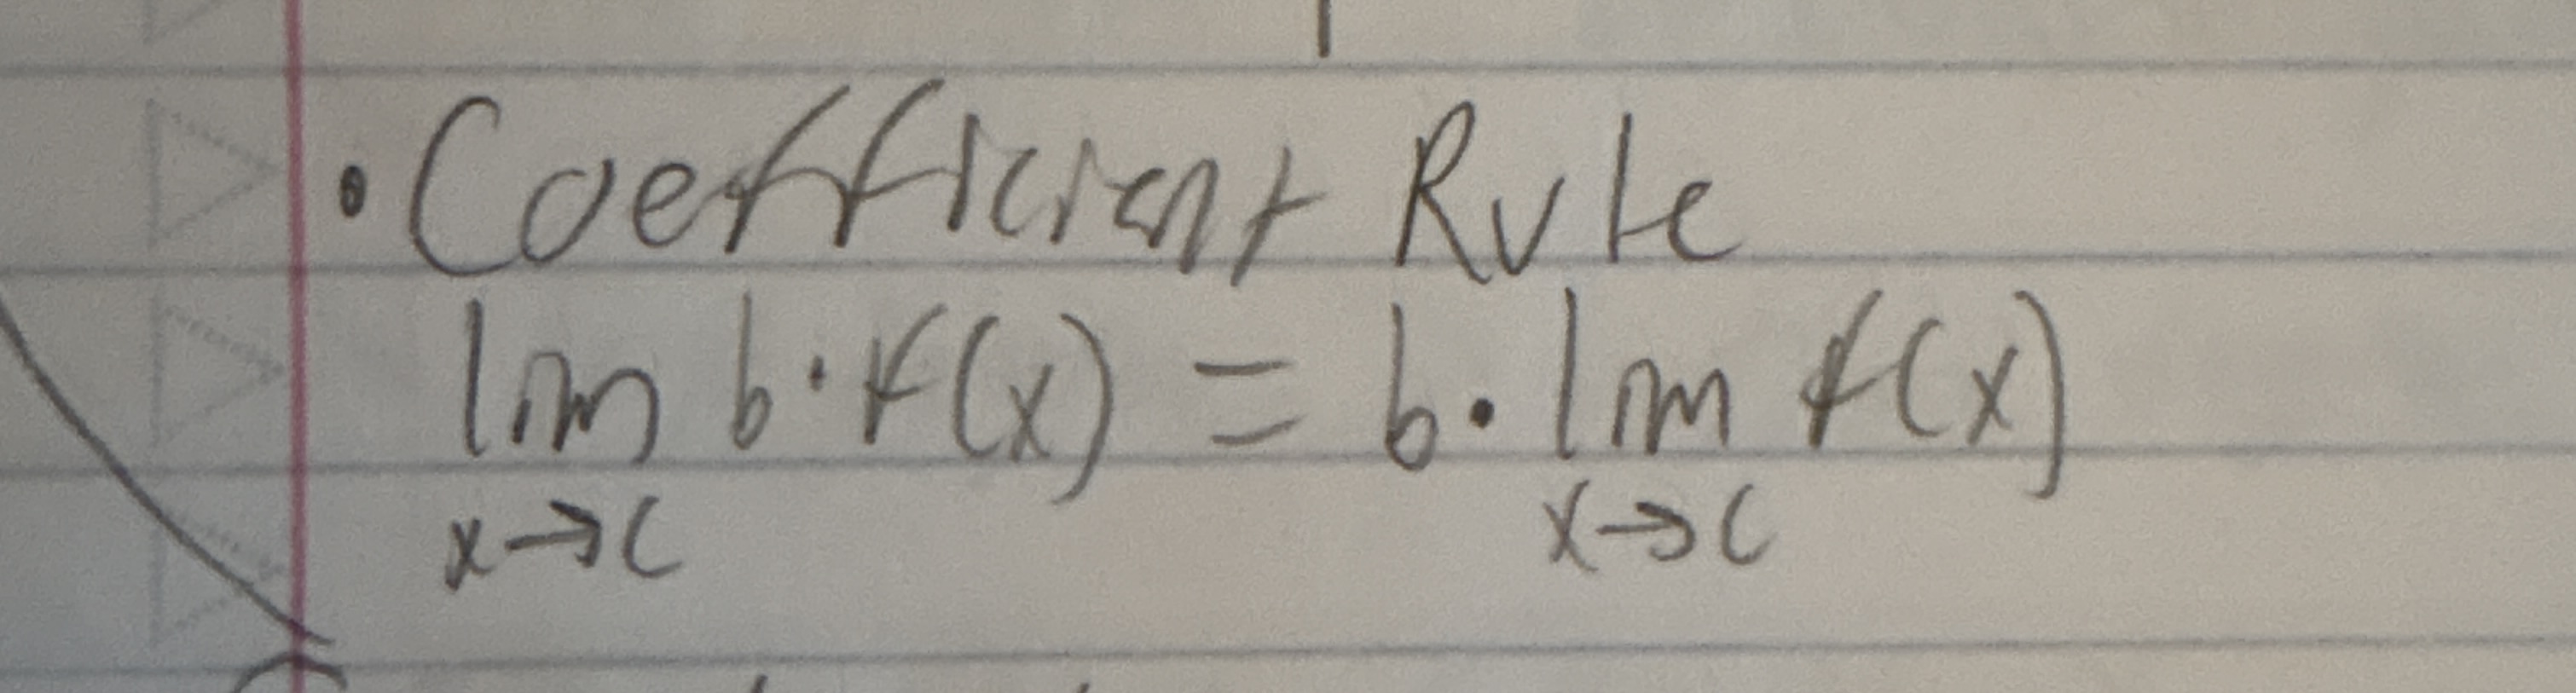 • Coefficient Rule
lim b·f(x) = b·lim f(x)
x→c x→c